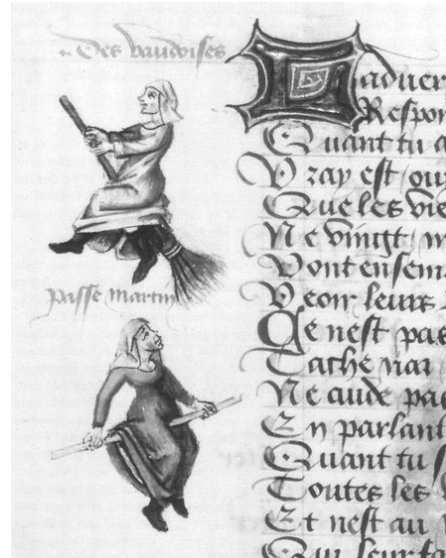 Des vaudoises
passe martin
Laduer
Respon
Quant tu a
Vray est ouy
Que les vie
Ne vingt
Vont ensem
Veoir leurs
Ce nest pas
Tache
Ne cuide pas
En parlant
Quant tu
Toutes les
Et nest au
Qui leur